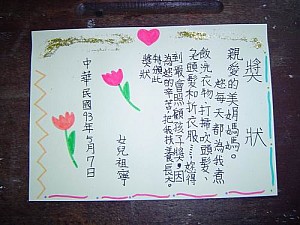 獎狀
親愛的美娟媽媽。
您每天都為我煮
飯、洗衣物、打掃、吹頭髮、
老頭髮和折衣服……妳得
到最會照顧孩子獎,因
為您的辛苦,把我扶養長大。
特頒此
獎狀
女兒祖寧
中華民國93年5月7日